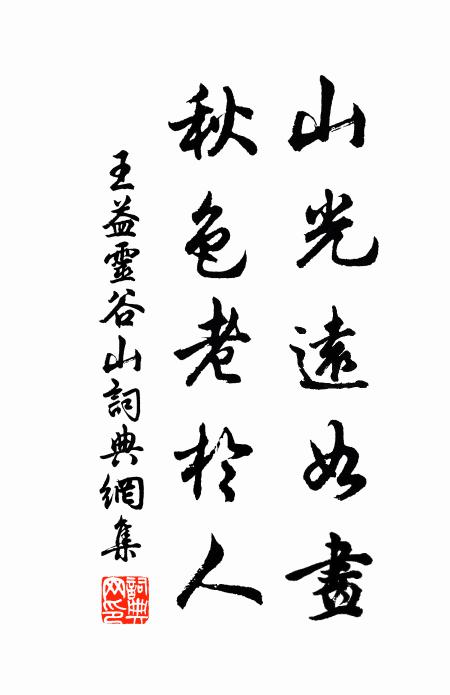 山光遠如畫
秋色老於人
王益靈谷山詞典網集
詞典網印